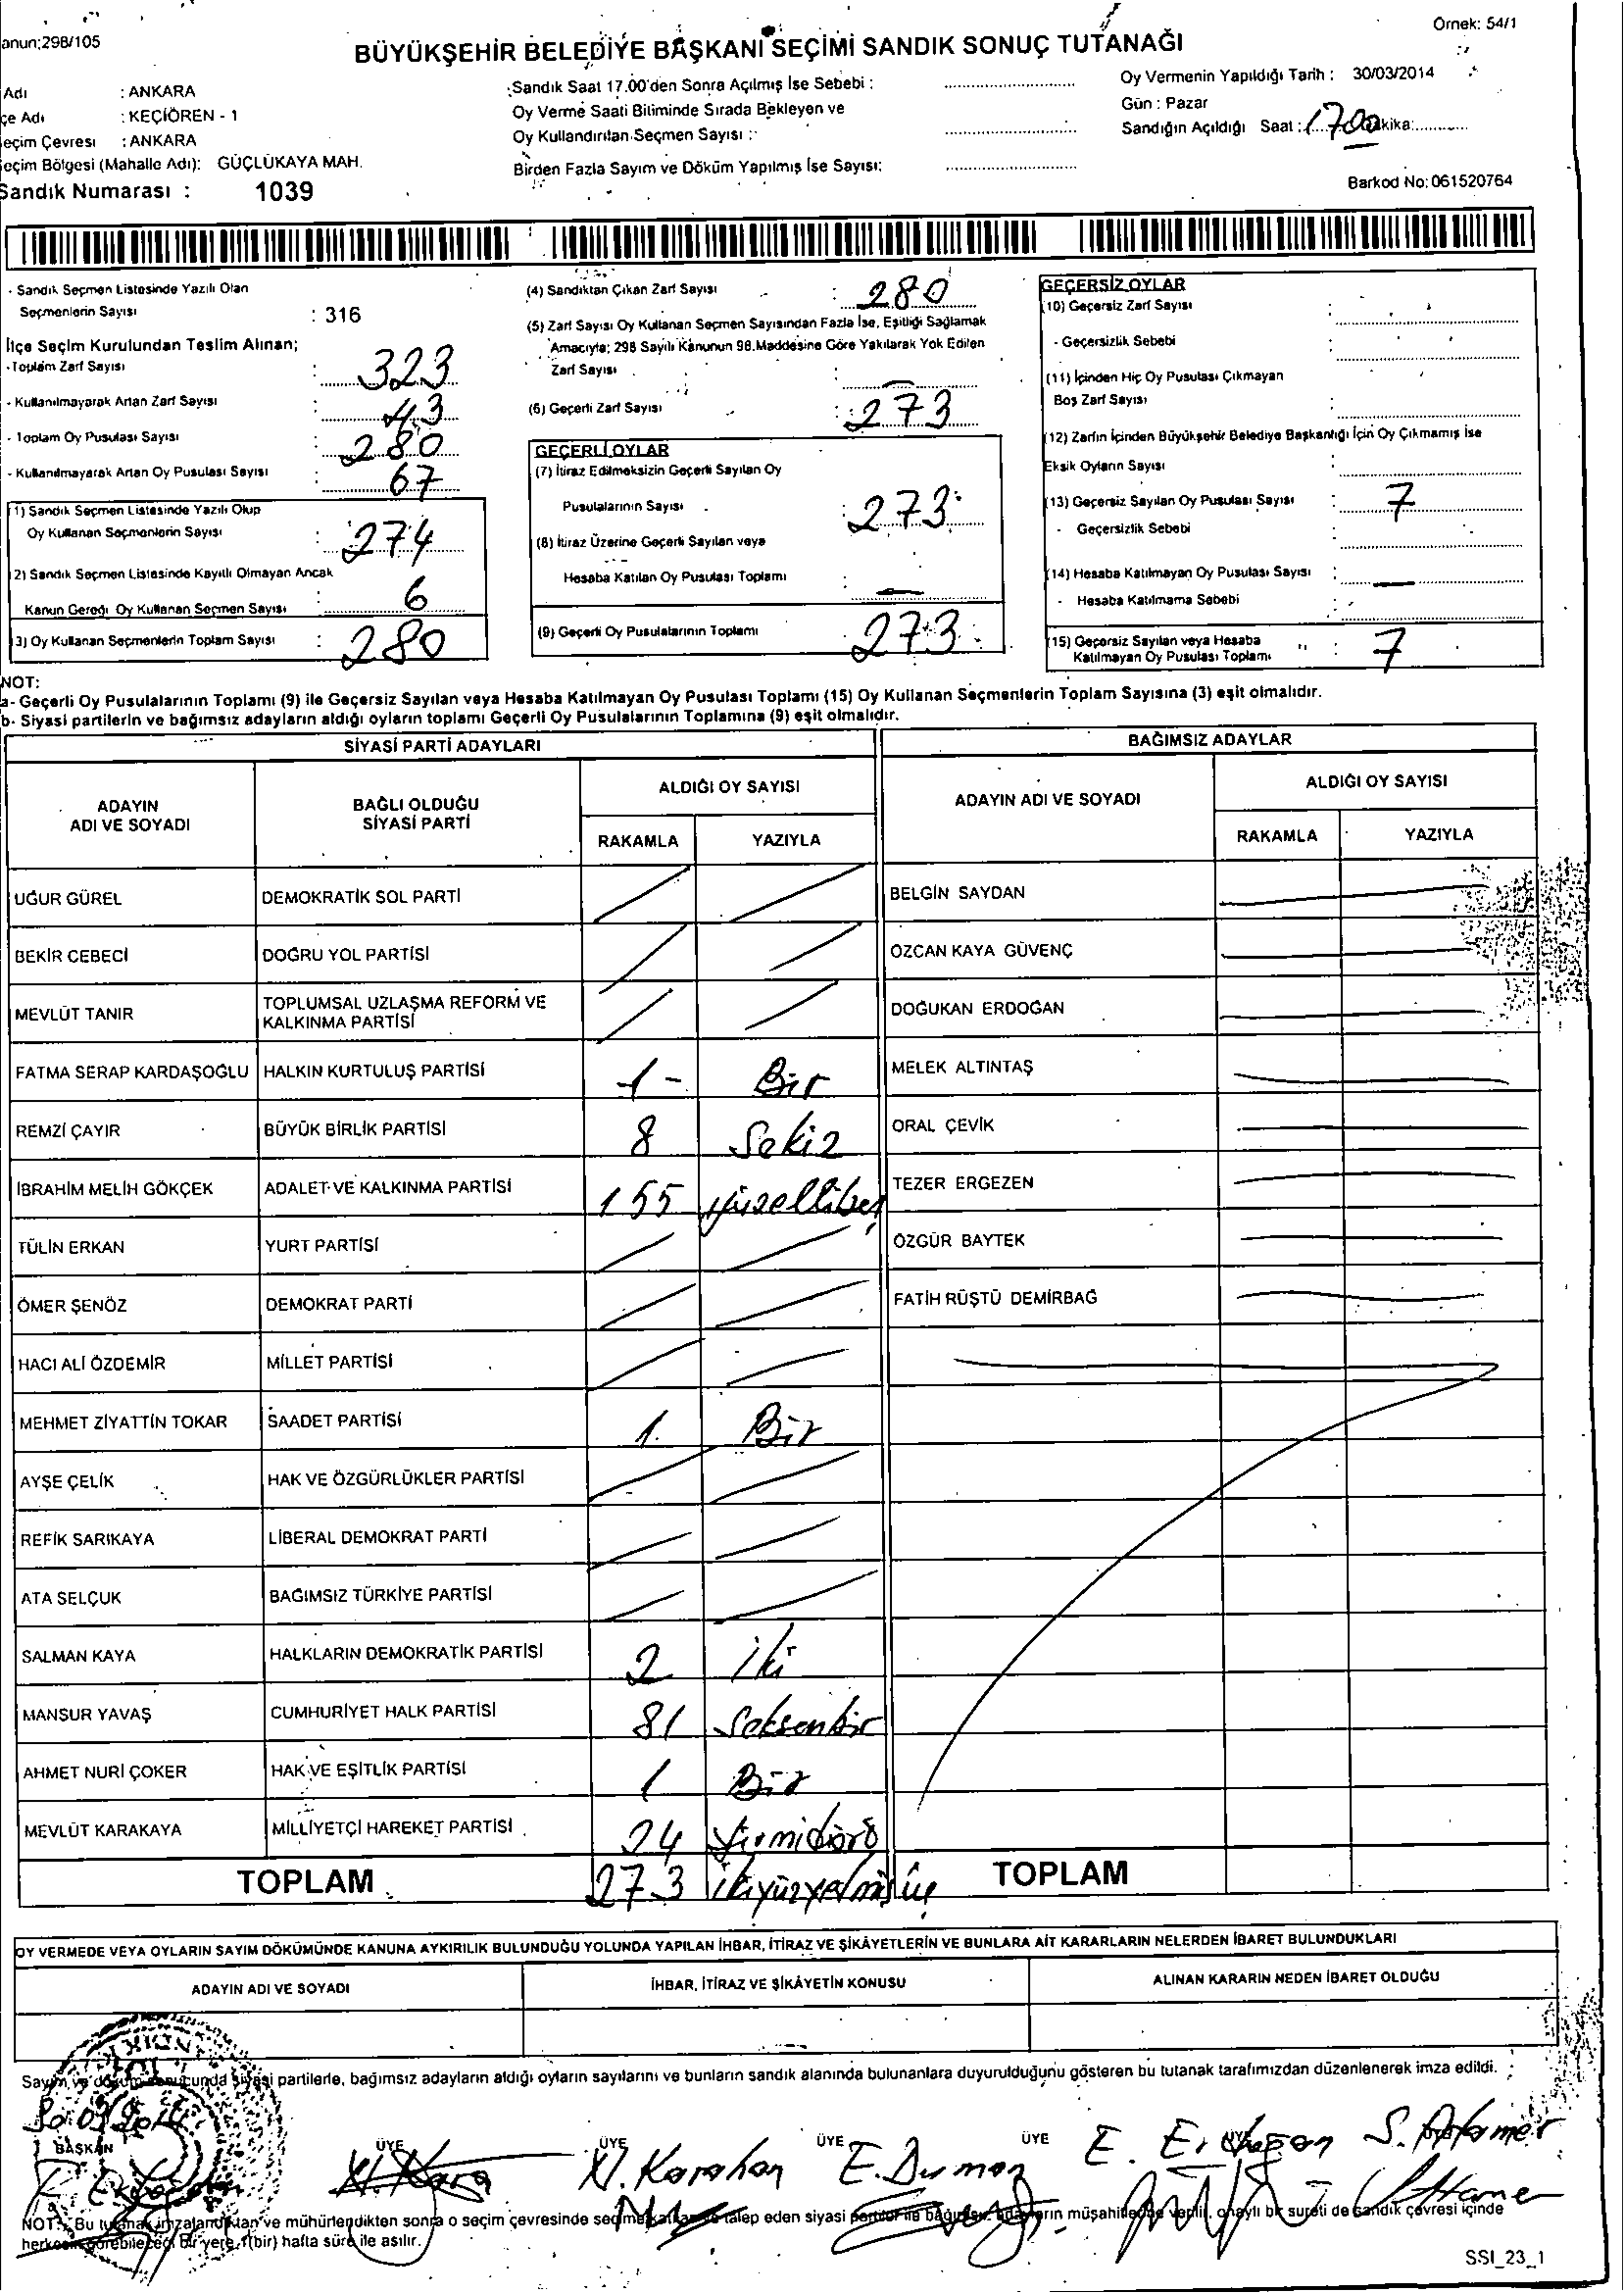 anun;298/105
Örnek: 54/1
BÜYÜKŞEHİR BELEDİYE BAŞKANI SEÇİMİ SANDIK SONUÇ TUTANAĞI
Adı : ANKARA
çe Adı : KEÇİÖREN - 1
eçim Çevresi : ANKARA
eçim Bölgesi (Mahalle Adı): GÜÇLÜKAYA MAH.
Sandık Numarası : 1039
Sandık Saat 17.00'den Sonra Açılmış İse Sebebi :
Oy Verme Saati Bitiminde Sırada Bekleyen ve
Oy Kullandırılan Seçmen Sayısı :
Birden Fazla Sayım ve Döküm Yapılmış İse Sayısı:
Oy Vermenin Yapıldığı Tarih : 30/03/2014
Gün : Pazar
Sandığın Açıldığı Saat : 1700 Dakika:
Barkod No: 061520764
- Sandık Seçmen Listesinde Yazılı Olan
Seçmenlerin Sayısı : 316
İlçe Seçim Kurulundan Teslim Alınan;
-Toplam Zarf Sayısı : 323
- Kullanılmayarak Artan Zarf Sayısı : 43
- Toplam Oy Pusulası Sayısı : 280
- Kullanılmayarak Artan Oy Pusulası Sayısı : 67
(1) Sandık Seçmen Listesinde Yazılı Olup
Oy Kullanan Seçmenlerin Sayısı : 274
2) Sandık Seçmen Listesinde Kayıtlı Olmayan Ancak
Kanun Gereği Oy Kullanan Seçmen Sayısı : 6
3) Oy Kullanan Seçmenlerin Toplam Sayısı : 280
(4) Sandıktan Çıkan Zarf Sayısı : 280
(5) Zarf Sayısı Oy Kullanan Seçmen Sayısından Fazla İse, Eşitliği Sağlamak
Amacıyla; 298 Sayılı Kanunun 98.Maddesine Göre Yakılarak Yok Edilen
Zarf Sayısı : —
(6) Geçerli Zarf Sayısı : 273
GEÇERLİ OYLAR
(7) İtiraz Edilmeksizin Geçerli Sayılan Oy
Pusulalarının Sayısı : 273
(8) İtiraz Üzerine Geçerli Sayılan veya
Hesaba Katılan Oy Pusulası Toplamı : —
(9) Geçerli Oy Pusulalarının Toplamı : 273
GEÇERSİZ OYLAR
(10) Geçersiz Zarf Sayısı :
- Geçersizlik Sebebi
(11) İçinden Hiç Oy Pusulası Çıkmayan
Boş Zarf Sayısı :
(12) Zarfın İçinden Büyükşehir Belediye Başkanlığı İçin Oy Çıkmamış İse
Eksik Oyların Sayısı :
(13) Geçersiz Sayılan Oy Pusulası Sayısı : 7
- Geçersizlik Sebebi :
(14) Hesaba Katılmayan Oy Pusulası Sayısı : —
- Hesaba Katılmama Sebebi :
(15) Geçersiz Sayılan veya Hesaba
Katılmayan Oy Pusulası Toplamı : 7
NOT:
a- Geçerli Oy Pusulalarının Toplamı (9) ile Geçersiz Sayılan veya Hesaba Katılmayan Oy Pusulası Toplamı (15) Oy Kullanan Seçmenlerin Toplam Sayısına (3) eşit olmalıdır.
b- Siyasi partilerin ve bağımsız adayların aldığı oyların toplamı Geçerli Oy Pusulalarının Toplamına (9) eşit olmalıdır.
SİYASİ PARTİ ADAYLARI
ADAYIN ADI VE SOYADI
BAĞLI OLDUĞU SİYASİ PARTİ
ALDIĞI OY SAYISI
RAKAMLA YAZIYLA
UĞUR GÜREL DEMOKRATİK SOL PARTİ
BEKİR CEBECİ DOĞRU YOL PARTİSİ
MEVLÜT TANIR TOPLUMSAL UZLAŞMA REFORM VE KALKINMA PARTİSİ
FATMA SERAP KARDAŞOĞLU HALKIN KURTULUŞ PARTİSİ 1- Bir
REMZİ ÇAYIR BÜYÜK BİRLİK PARTİSİ 8 Sekiz
İBRAHİM MELİH GÖKÇEK ADALET VE KALKINMA PARTİSİ 155 yüzellibeş
TÜLİN ERKAN YURT PARTİSİ
ÖMER ŞENÖZ DEMOKRAT PARTİ
HACI ALİ ÖZDEMİR MİLLET PARTİSİ
MEHMET ZİYATTİN TOKAR SAADET PARTİSİ 1 Bir
AYŞE ÇELİK HAK VE ÖZGÜRLÜKLER PARTİSİ
REFİK SARIKAYA LİBERAL DEMOKRAT PARTİ
ATA SELÇUK BAĞIMSIZ TÜRKİYE PARTİSİ
SALMAN KAYA HALKLARIN DEMOKRATİK PARTİSİ 2 iki
MANSUR YAVAŞ CUMHURİYET HALK PARTİSİ 81 Seksenbir
AHMET NURİ ÇOKER HAK VE EŞİTLİK PARTİSİ 1 Bir
MEVLÜT KARAKAYA MİLLİYETÇİ HAREKET PARTİSİ 24 Yirmidört
TOPLAM 273 ikiyüzyetmişüç
BAĞIMSIZ ADAYLAR
ADAYIN ADI VE SOYADI
ALDIĞI OY SAYISI
RAKAMLA YAZIYLA
BELGİN SAYDAN
ÖZCAN KAYA GÜVENÇ
DOĞUKAN ERDOĞAN
MELEK ALTINTAŞ
ORAL ÇEVİK
TEZER ERGEZEN
ÖZGÜR BAYTEK
FATİH RÜŞTÜ DEMİRBAĞ
TOPLAM
OY VERMEDE VEYA OYLARIN SAYIM DÖKÜMÜNDE KANUNA AYKIRILIK BULUNDUĞU YOLUNDA YAPILAN İHBAR, İTİRAZ VE ŞİKÂYETLERİN VE BUNLARA AİT KARARLARIN NELERDEN İBARET BULUNDUKLARI
ADAYIN ADI VE SOYADI
İHBAR, İTİRAZ VE ŞİKÂYETİN KONUSU
ALINAN KARARIN NEDEN İBARET OLDUĞU
Sayım ve döküm sonucunda siyasi partilerle, bağımsız adayların aldığı oyların sayılarını ve bunların sandık alanında bulunanlara duyurulduğunu gösteren bu tutanak tarafımızdan düzenlenerek imza edildi.
30.03.2014
BAŞKAN ÜYE ÜYE ÜYE ÜYE ÜYE
N. Kara N. Karahan E. Duman E. Erdoğan S. Atamer
NOT: Bu tutanak imzalandıktan ve mühürlendikten sonra o seçim çevresinde seçime katılan ve talep eden siyasi partiler ile bağımsız adayların müşahitlerine verilir, onaylı bir sureti de sandık çevresi içinde
herkesin görebileceği bir yere 1(bir) hafta süre ile asılır.
SSI_23_1